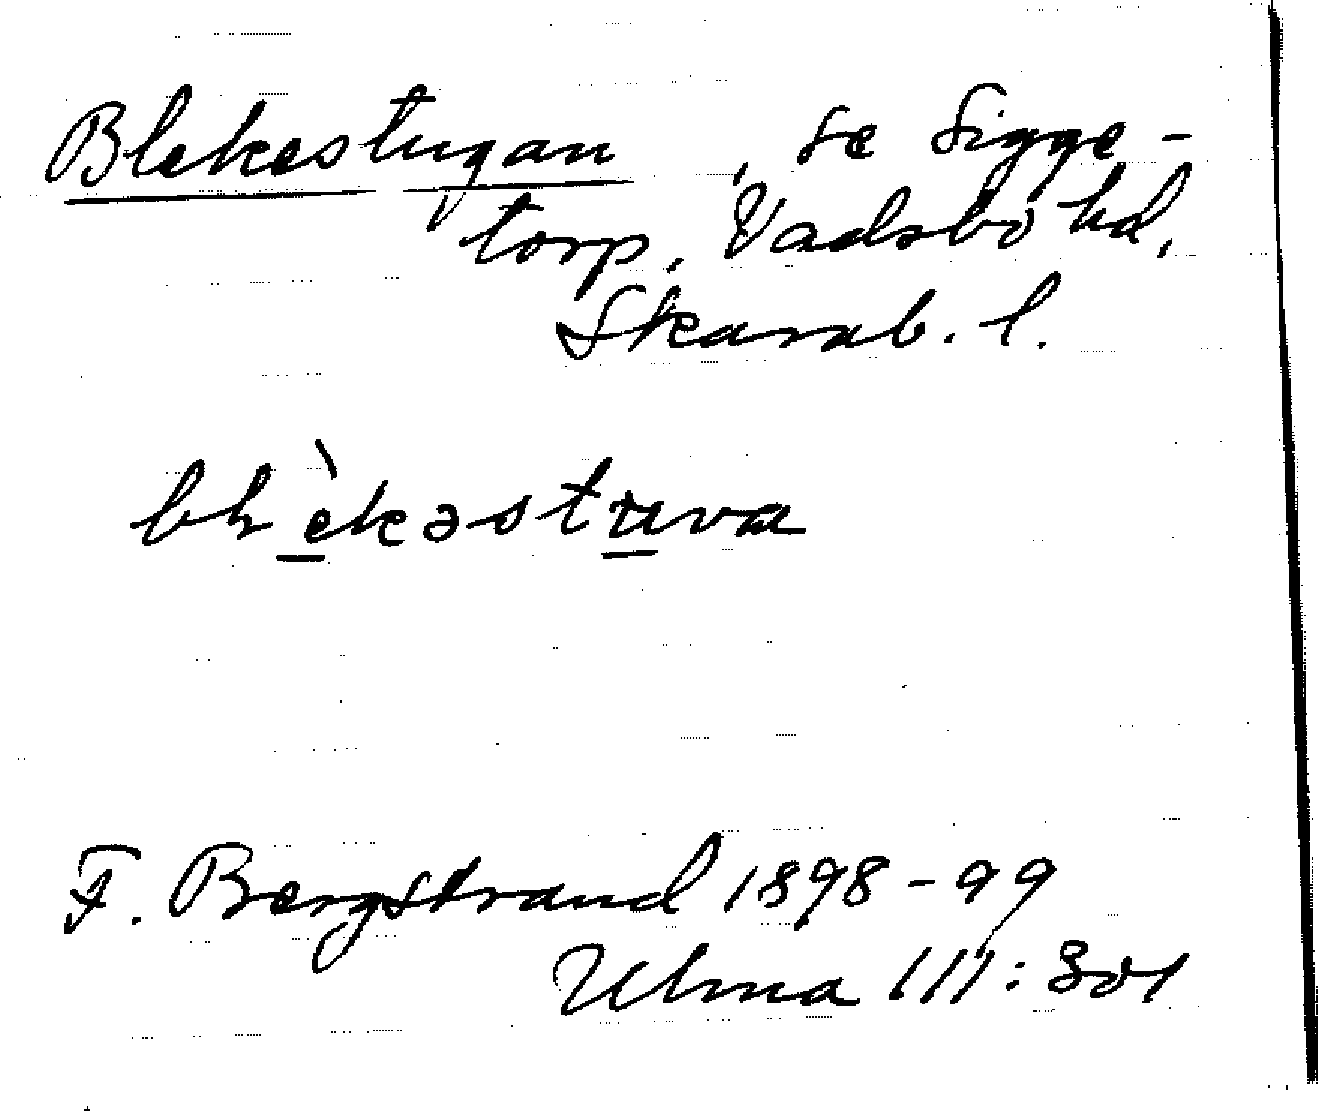 Blekestugan, se Sigge-
torp, Vadsbo hd,
Skarab. l.
blèkəstuva
F. Bergstrand 1898-99
Ulma 111:301